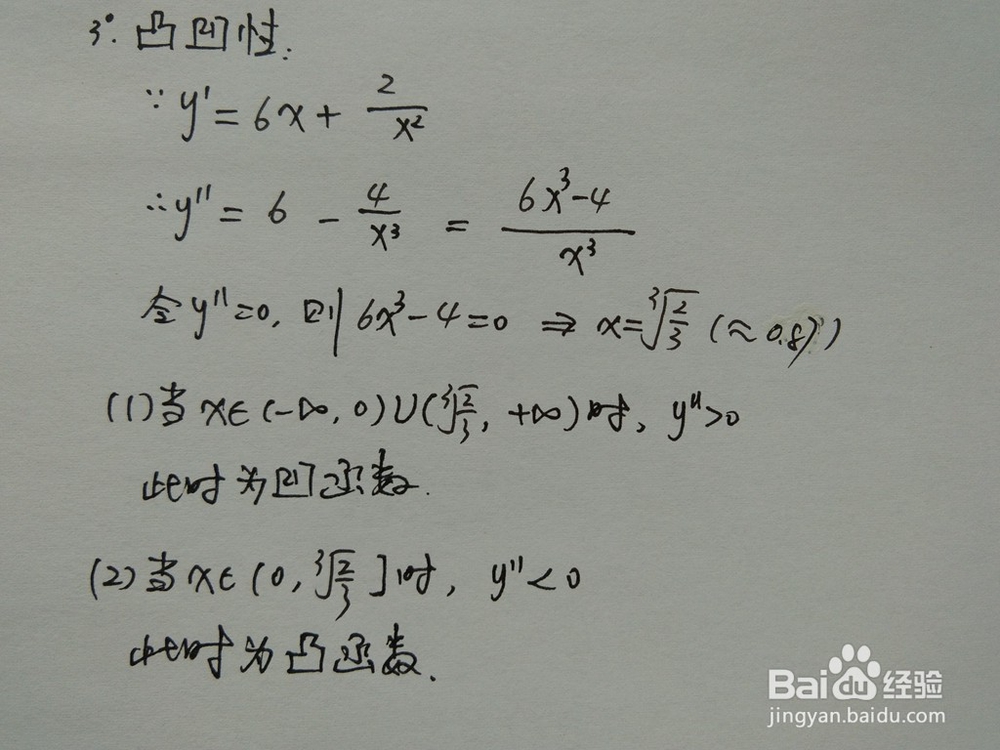 3°. 凸凹性:
∵ y' = 6x + 2/x²
∴ y'' = 6 - 4/x³ = (6x³-4)/x³
令 y''=0, 则 6x³-4=0 ⇒ x=∛(2/3) (≈0.87)
(1) 当 x∈(-∞, 0)∪(∛(2/3), +∞) 时, y''>0
此时为凹函数.
(2) 当 x∈(0, ∛(2/3)] 时, y''<0
此时为凸函数.
Baidu经验
jingyan.baidu.com